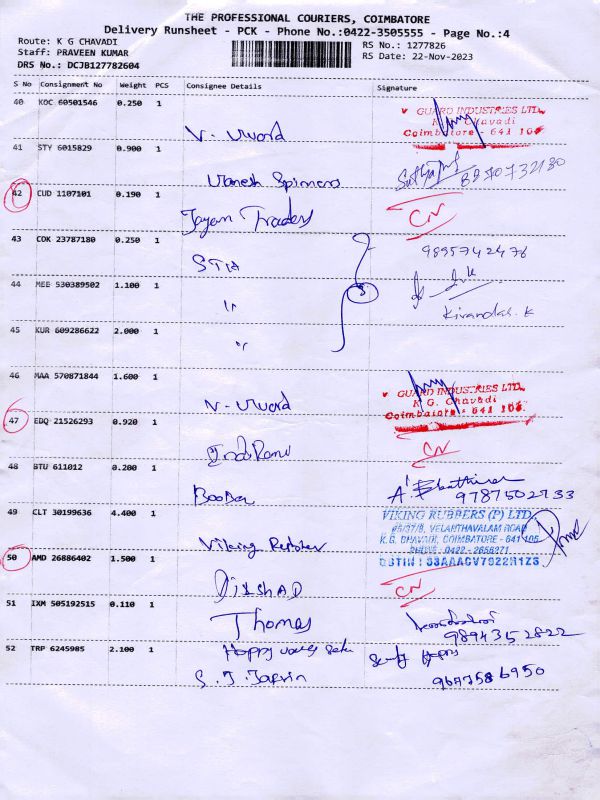 THE PROFESSIONAL COURIERS, COIMBATORE
Delivery Runsheet - PCK - Phone No.:0422-3505555 - Page No.:4
Route: K G CHAVADI
RS No.: 1277826
Staff: PRAVEEN KUMAR
RS Date: 22-Nov-2023
DRS No.: DCJB127782604
S No Consignment No Weight PCS Consignee Details Signature
40 KOC 60501546 0.250 1
V-
GUARD INDUSTRIES LTD.
K. G. Chavadi
Coimbatore - 641 105
41 STY 6015829 0.900 1
8270732180
42 CUD 1107101 0.190 1
Jayam Traders
CN
43 COK 23787180 0.250 1
9895742476
44 MEE 530389502 1.100 1
"
Kirandas. K
45 KUR 609286622 2.000 1
"
46 MAA 570871844 1.600 1
V-
GUARD INDUSTRIES LTD.
K. G. Chavadi
Coimbatore - 641 105
47 EDQ 21526293 0.920 1
CN
48 BTU 611012 0.200 1
9787502733
49 CLT 30199636 4.400 1
Viking Rubber
VIKING RUBBERS (P) LTD.
VELANTHAVALAM ROAD
K.G. CHAVADI, COIMBATORE - 641 105
PHONE : 0422 - 2656271
GSTIN : 33AAACV7922H1ZS
50 AMD 26886402 1.500 1
DIXSHAD
CN
51 IXM 505192515 0.110 1
Thomas
9894352822
52 TRP 6245985 2.100 1
Happy
S. J. Jarvin
9677586950